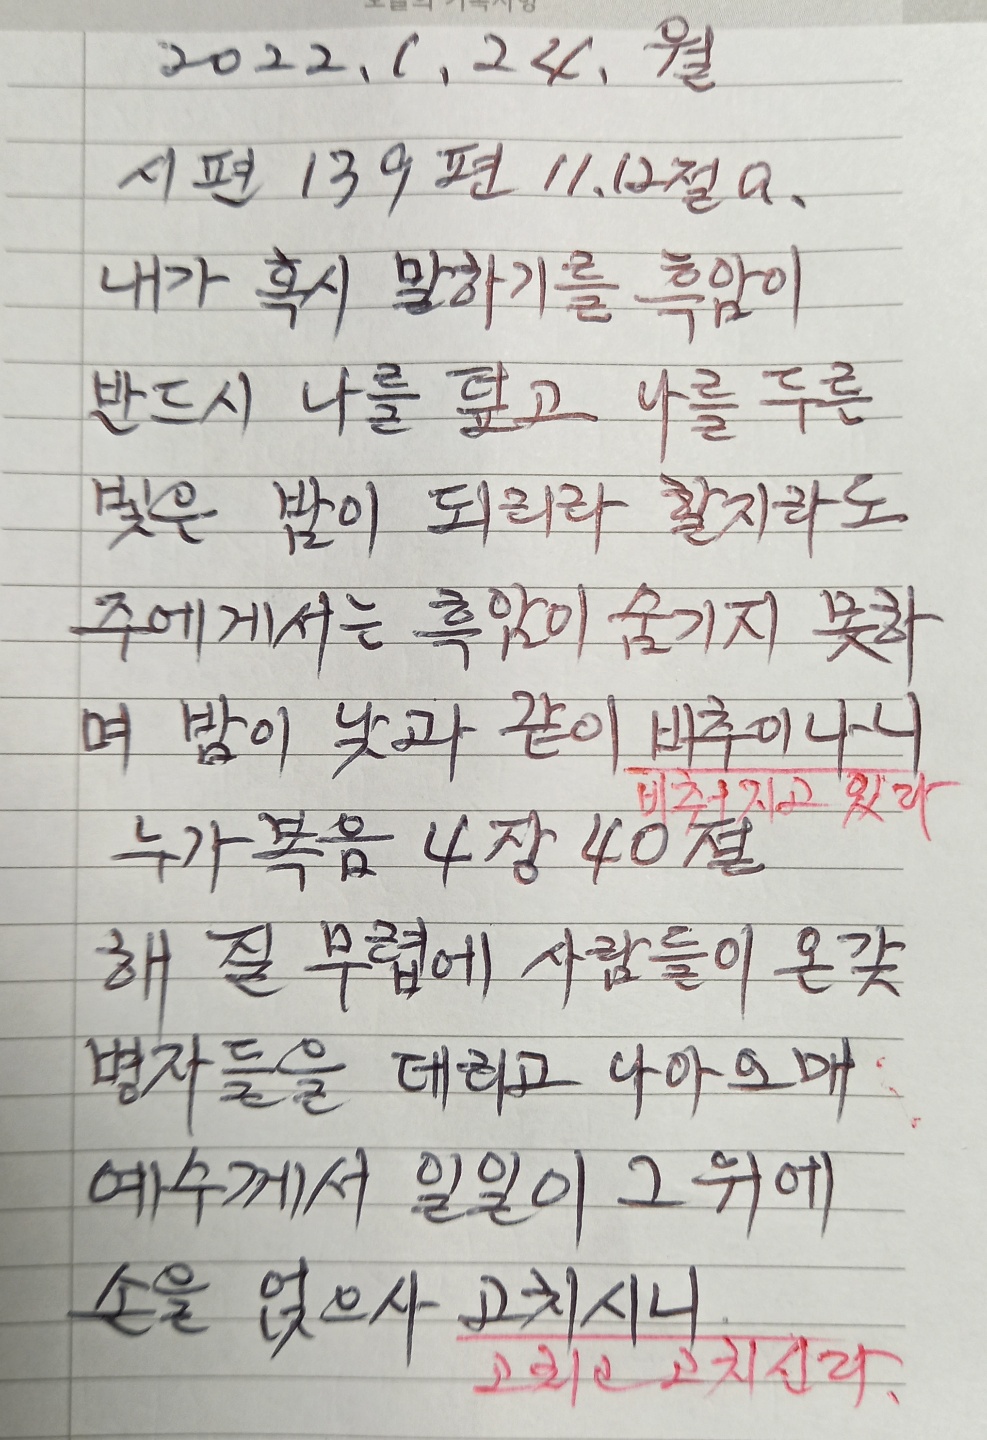 2022. 1. 24. 월
시편 139편 11.12절 a.
내가 혹시 말하기를 흑암이
반드시 나를 덮고 나를 두른
빛은 밤이 되리라 할지라도
주에게서는 흑암이 숨기지 못하
며 밤이 낮과 같이 비추이나니
비추어지고 있다
누가복음 4장 40절
해 질 무렵에 사람들이 온갖
병자들을 데리고 나아오매
예수께서 일일이 그 위에
손을 얹으사 고치시니
고치고 고치신다.